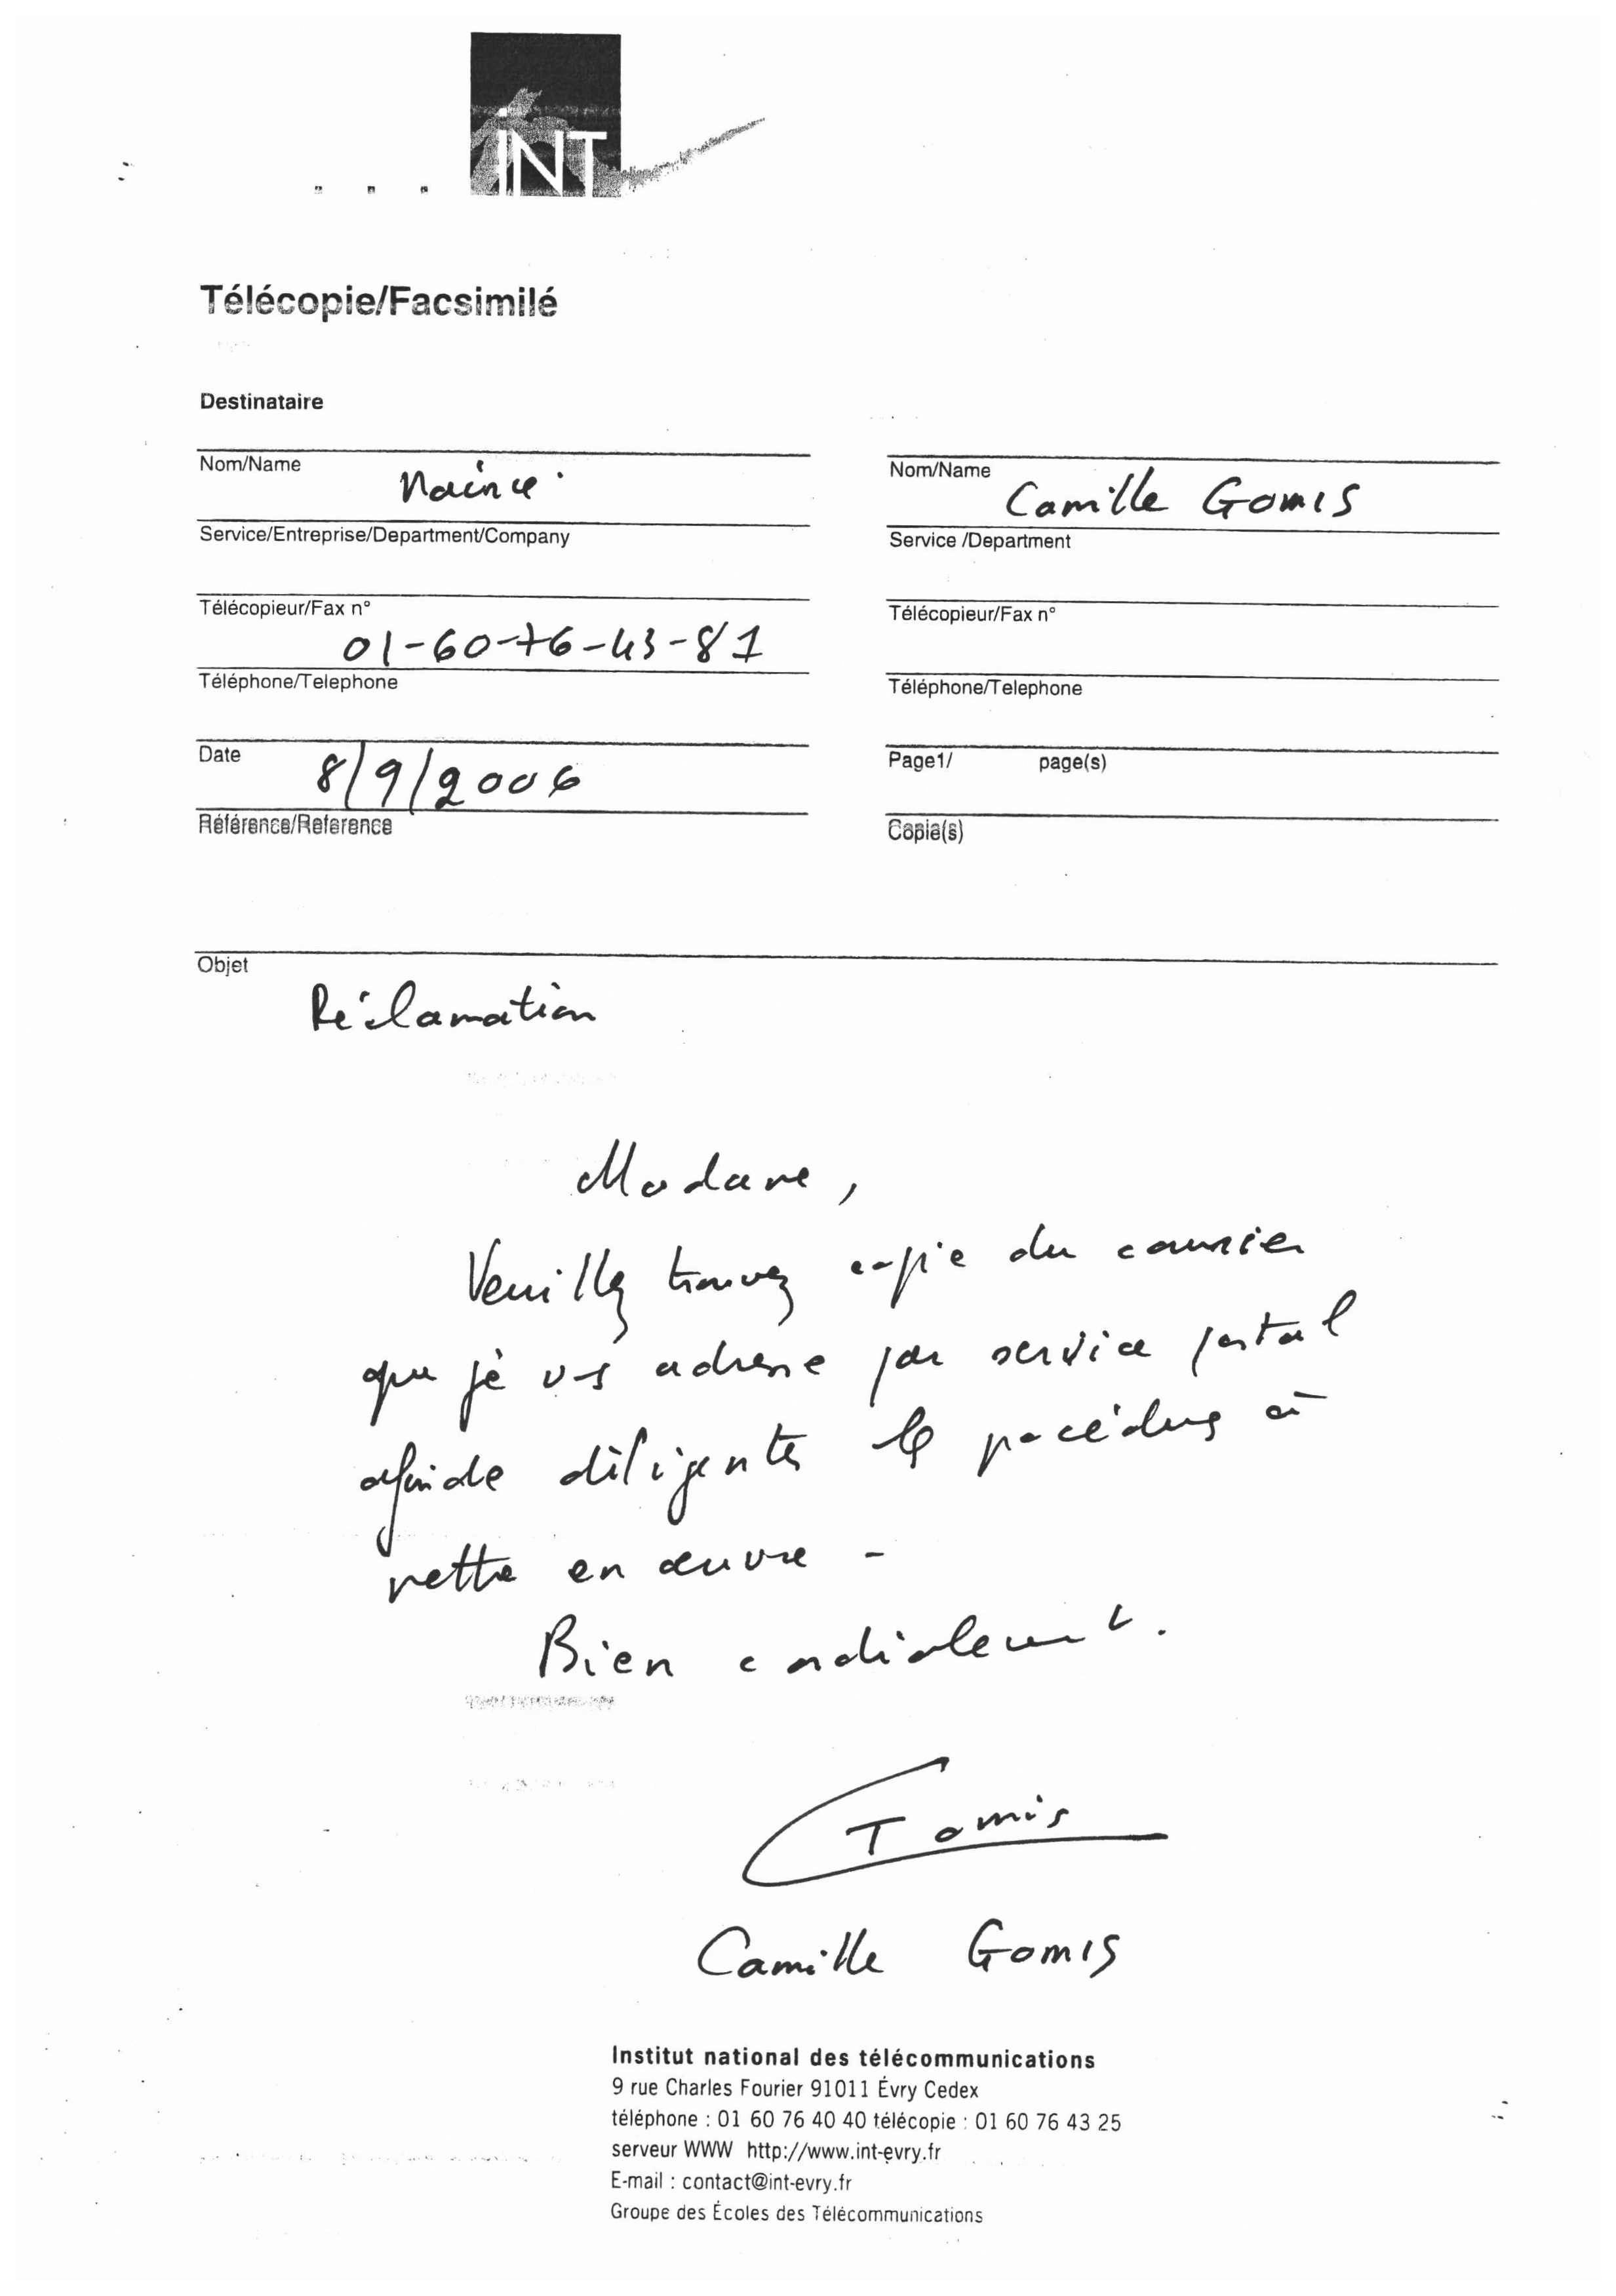 INT
Télécopie/Facsimilé
Destinataire
Nom/Name
Service/Entreprise/Department/Company
Télécopieur/Fax n°
01-60-76-43-81
Téléphone/Telephone
Date 8/9/2006
Référence/Reference
Nom/Name Camille Gomis
Service /Department
Télécopieur/Fax n°
Téléphone/Telephone
Page1/ page(s)
Copie(s)
Objet
Réclamation
Madame,
Veuillez trouvez copie du courrier
que je vs adresse par service postal
afin de diligenter les procédures à
mettre en œuvre -
Bien cordialement.
Gomis
Camille Gomis
Institut national des télécommunications
9 rue Charles Fourier 91011 Évry Cedex
téléphone : 01 60 76 40 40 télécopie : 01 60 76 43 25
serveur WWW http://www.int-evry.fr
E-mail : contact@int-evry.fr
Groupe des Écoles des Télécommunications